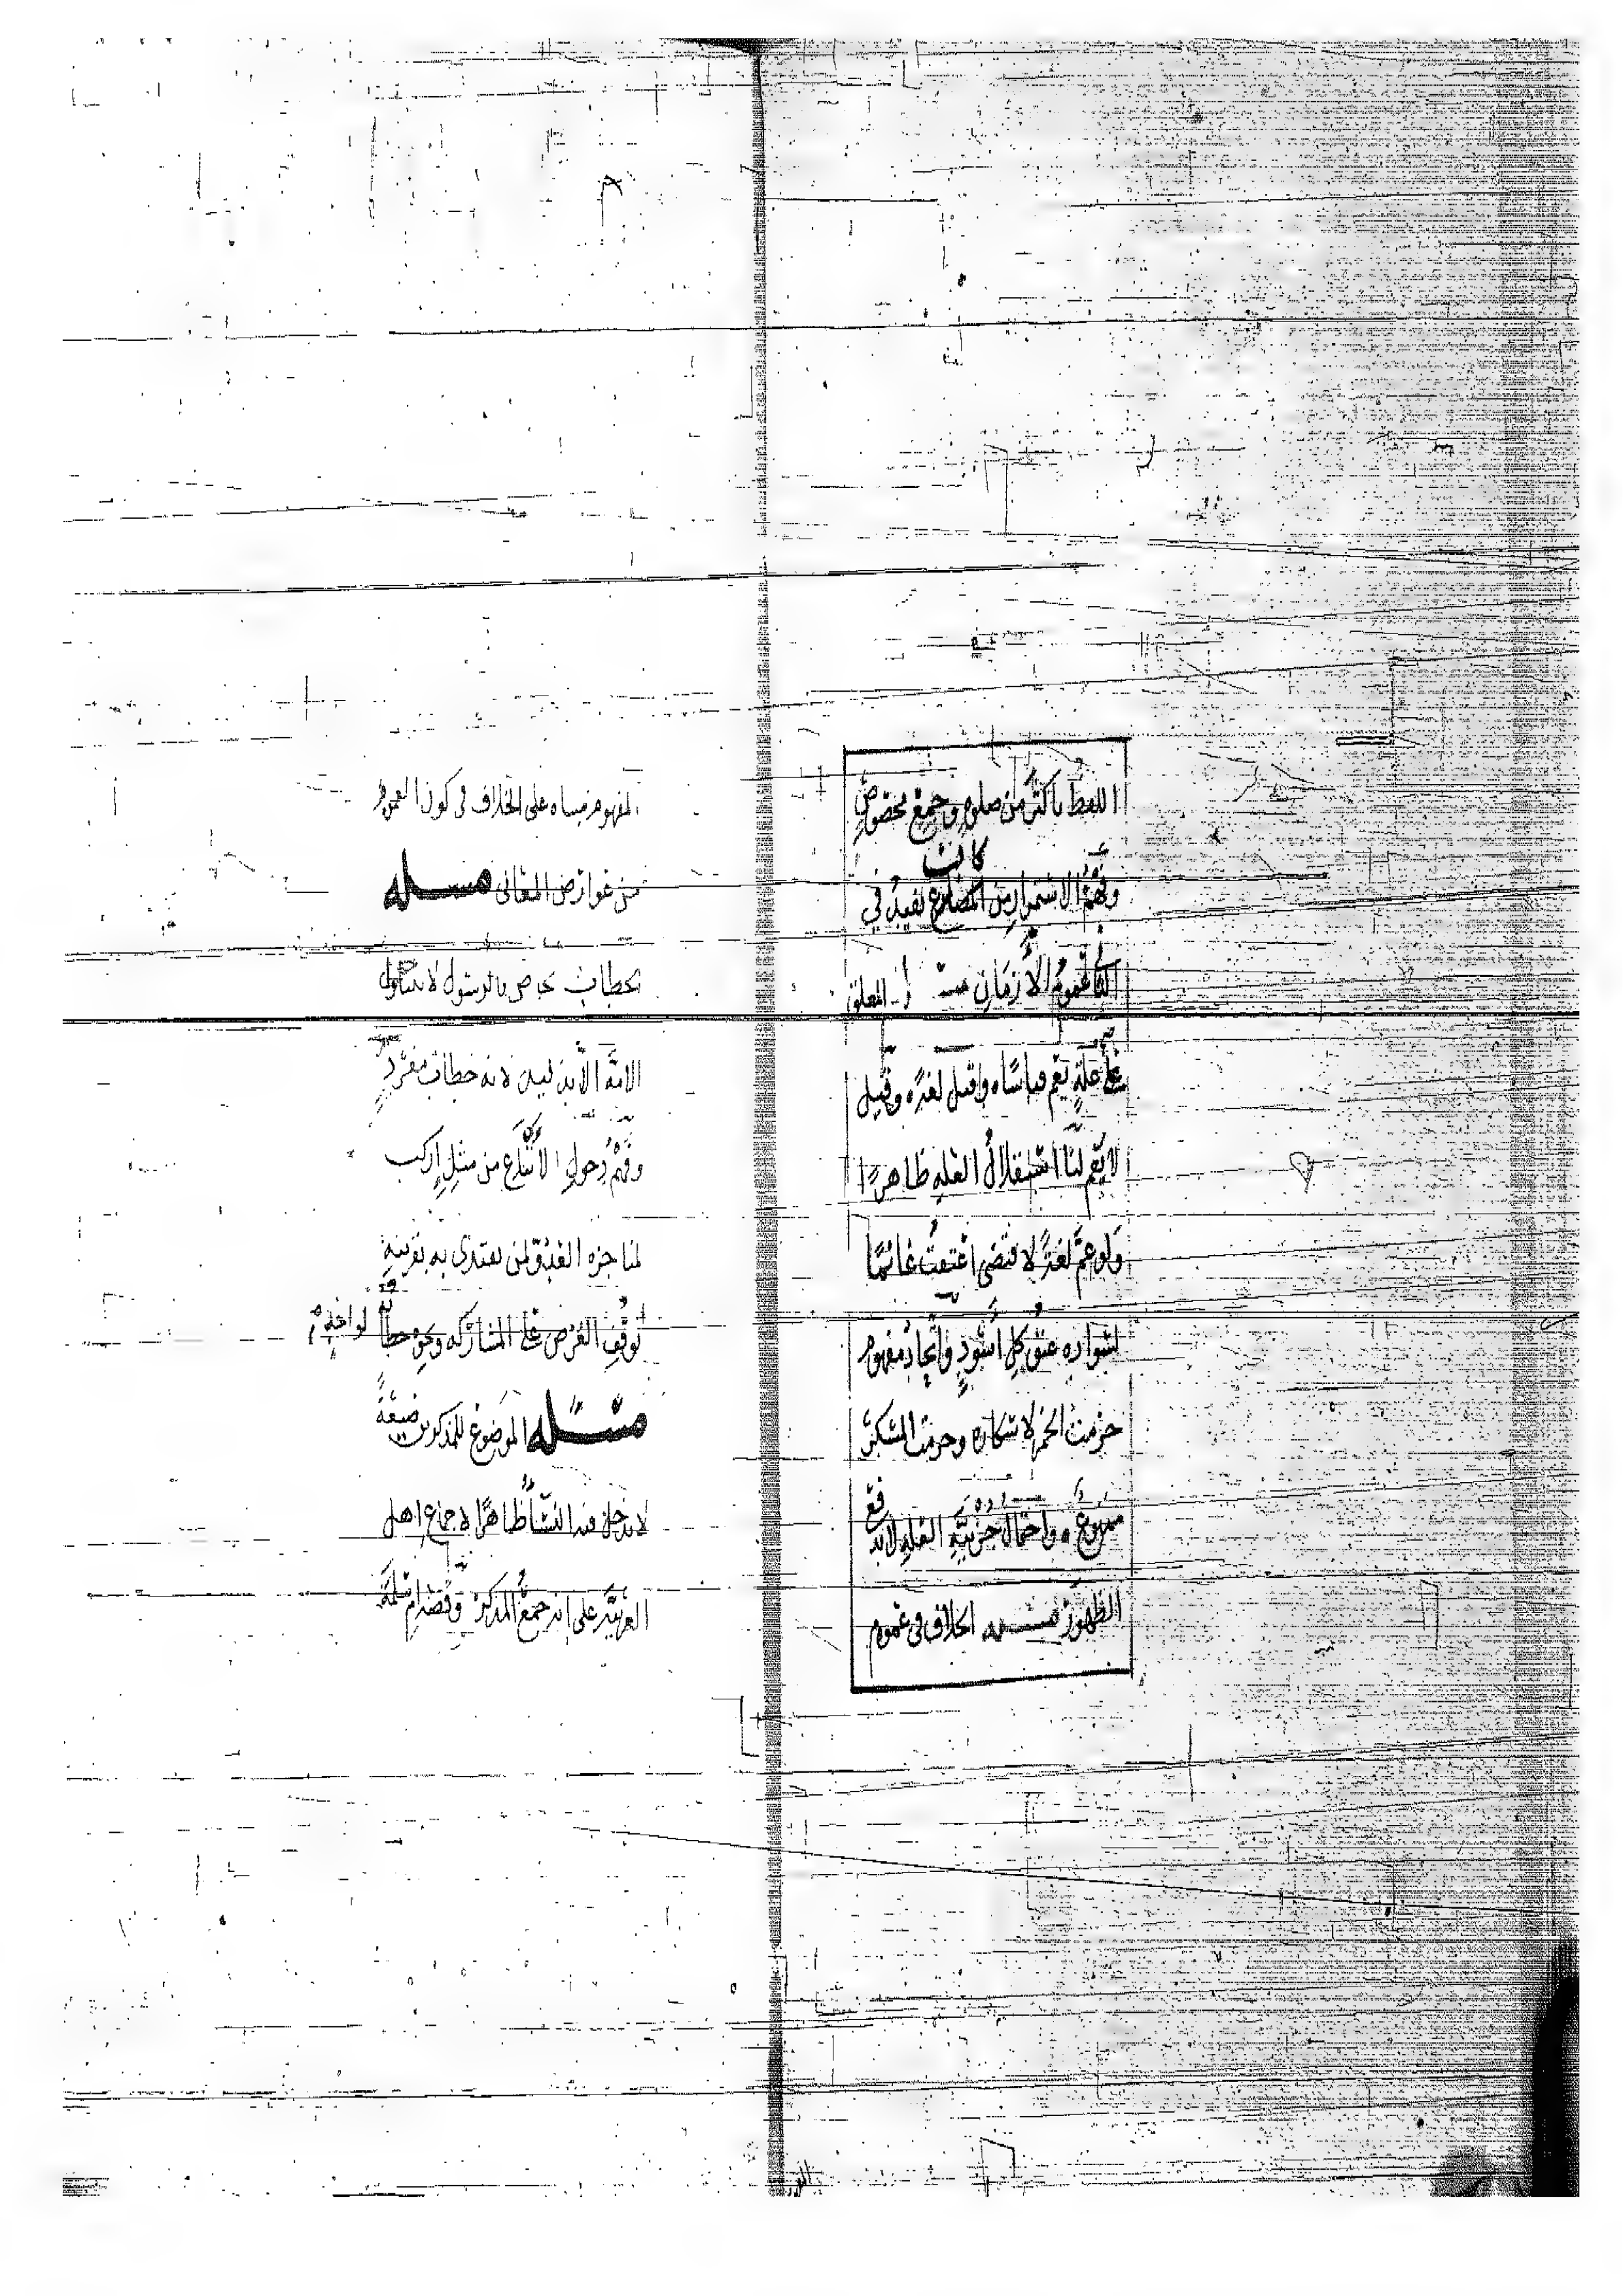 اللفظ باكثر من صلوه وجمع مخصوص
كانت
وفهم الاستمرار من المضارع لا يفيد في
عموم الازمان مسئلة المعلق
على علة يعم قياسا وقيل لغة وقيل
لا يعم لنا استقلال العلة ظاهرا
ولو عم لغة لاقتضى اعتقت غانما
لسواده عتق كل اسود واتحاد مفهوم
حرمت الخمر لاسكاره وحرمت المسكر
ممنوع واحتمال جزئية العلة لا يدفع
الظهور مسئله الخلاف في عموم
المفهوم مبناه على الخلاف في كون العموم
من عوارض المعاني مسئله
خطاب خاص بالرسول لا يتناول
الامة الا بدليل لانه خطاب مفرد
وفهم دخول الاتباع من مثل اركب
لمناجزه العدو لمن يقتدى به بقرينة
توقف الغرض على المشاركه ونحوه خطاب لواحد
مسئله الموضوع للمذكرين صيغة
لا يدخل فيه النساء ظاهرا لاجماع اهل
العربية على انه جمع المذكر وقصد ام سلمة